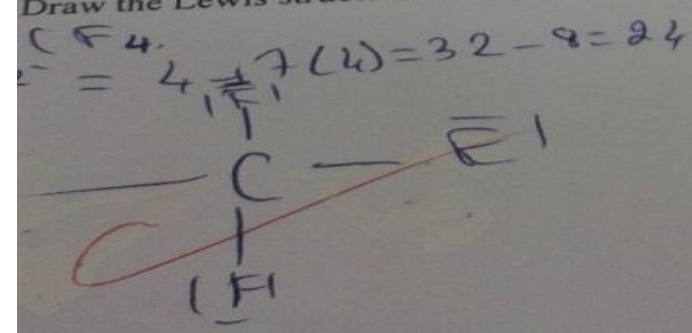 Draw the Lewis
CF4.
e⁻ = 4 + 7(4) = 32 - 8 = 24
F
C — F
F